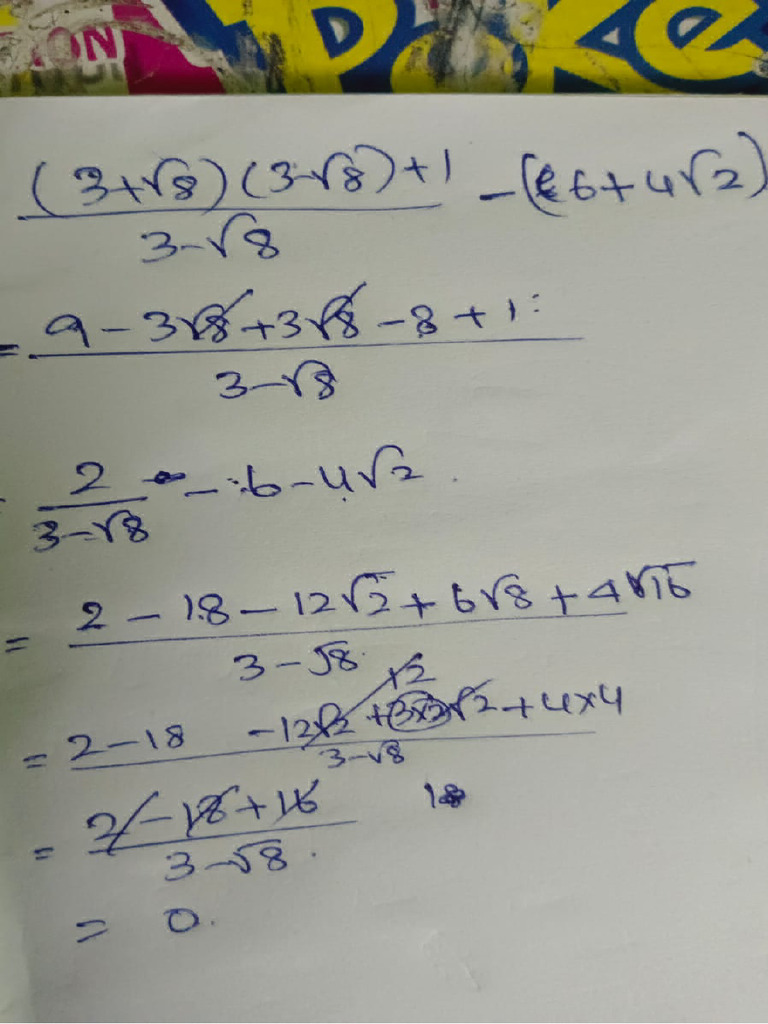 ON
Poke
(3+√8)(3-√8)+1 / 3-√8 - (6+4√2)
= 9-3√8+3√8-8+1 / 3-√8
2 / 3-√8 - 6-4√2
= 2-18-12√2+6√8+4√16 / 3-√8
×2
= 2-18 -12√2+3×2√2+4×4 / 3-√8
= 2-18+16 / 3-√8
18
= 0.